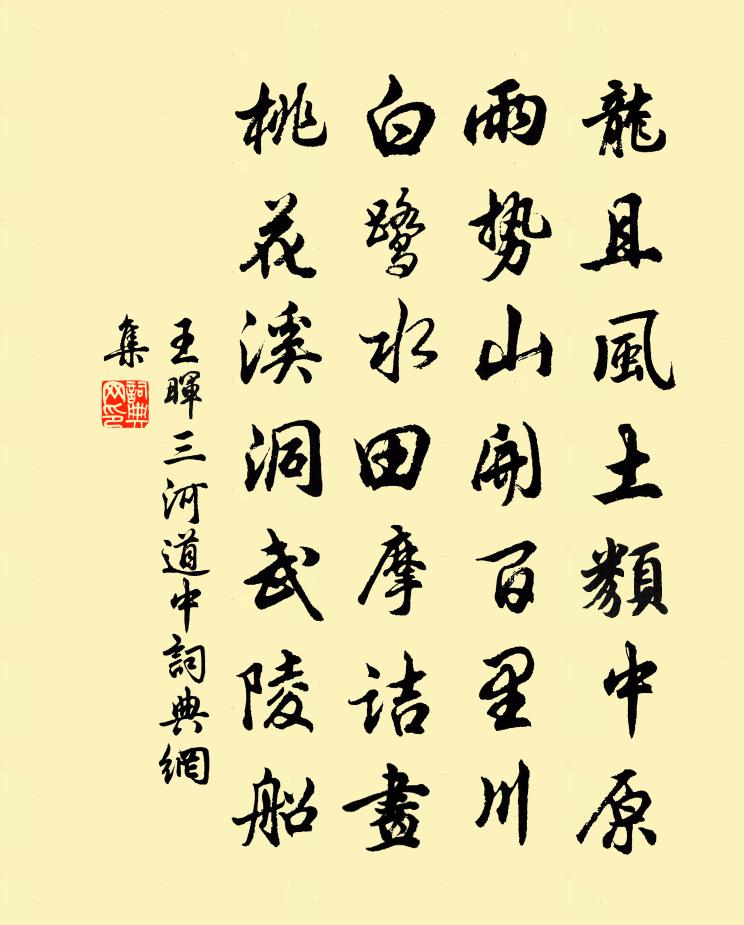 龍且風土類中原
雨勢山開百里川
白鷺水田摩詰畫
桃花溪洞武陵船
王暉三河道中詞典網
集
詞典
网印